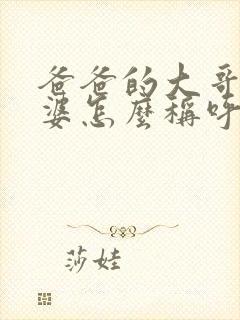 爸爸的大哥
婆怎麼稱呼
莎娃